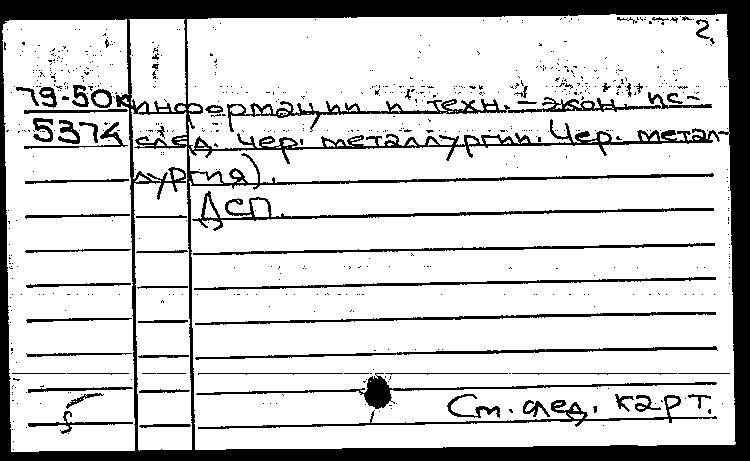 2
79-50к информации и техн.-экон. ис-
5374 след. чер. металлургии. Чер. метал-
лургия).
ДСП.
См. след. карт.
5